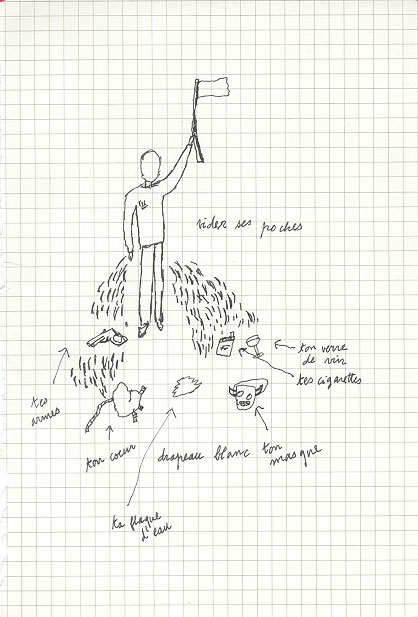 vider ses poches
ton verre
de vin
tes cigarettes
tes
armes
ton coeur
drapeau blanc
ton
masque
ta flaque
d'eau